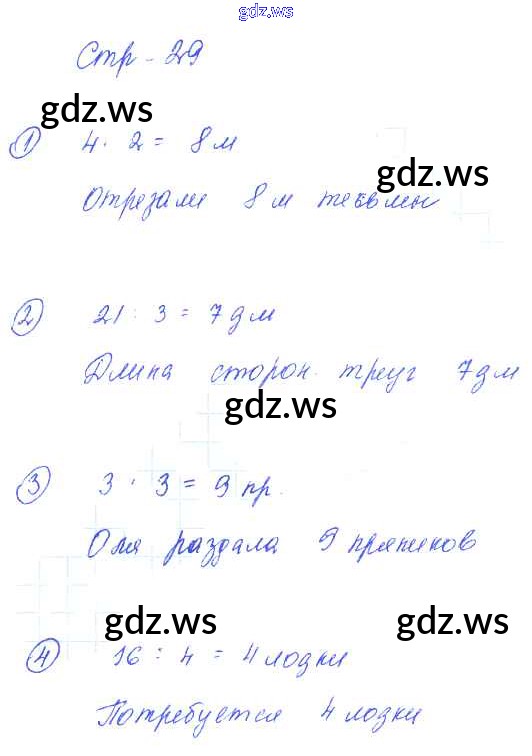 gdz.ws
Стр - 29
gdz.ws
1 4 · 2 = 8 м
gdz.ws
Отрезали 8 м тесьмы
2 21 : 3 = 7 дм
Длина сторон. треуг 7 дм
gdz.ws
3 3 · 3 = 9 пр.
Оля раздала 9 пряников
gdz.ws gdz.ws
4 16 : 4 = 4 лодки
Потребуется 4 лодки